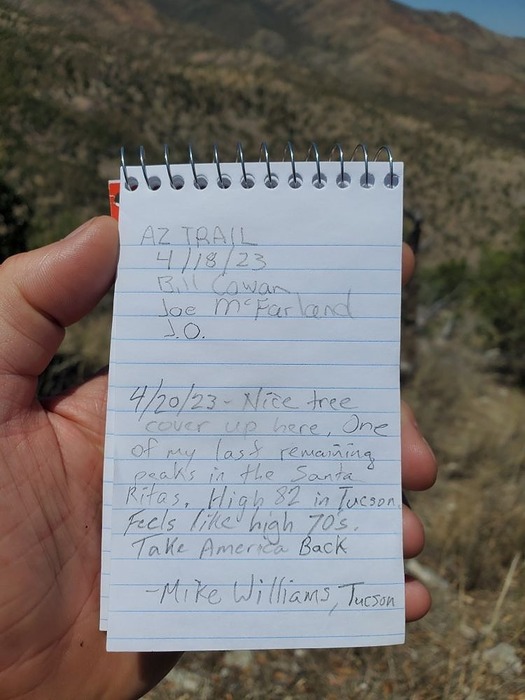 AZ TRAIL
4/18/23
Bill Cowan
Joe McFarland
J.O.
4/20/23- Nice tree
cover up here, One
of my last remaining
peaks in the Santa
Ritas. High 82 in Tucson.
Feels like high 70s.
Take America Back
-Mike Williams, Tucson